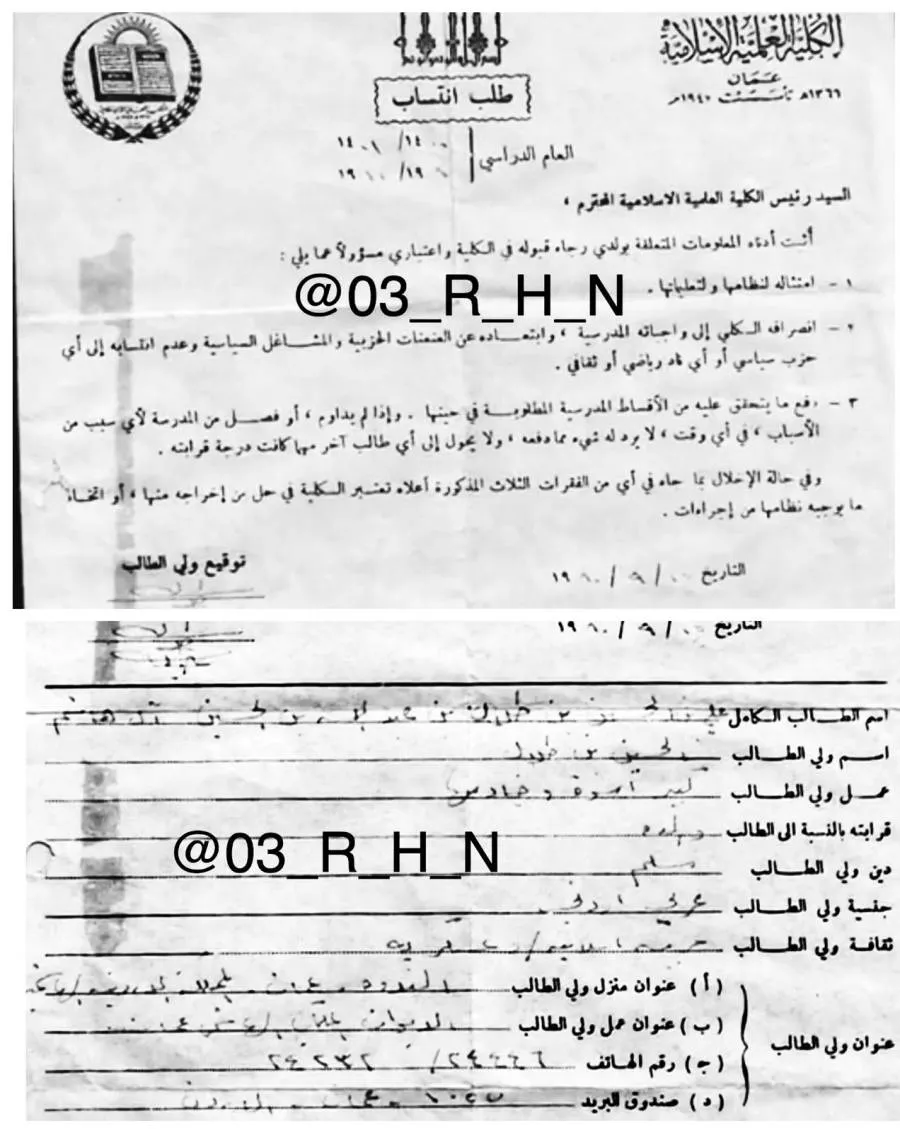 الكلية العلمية الاسلامية
عمان
تأسست ١٩٤٠م ١٣٦٦هـ
طلب انتساب
العام الدراسي
١٤٠٠/ ١٤٠١
السيد رئيس الكلية العلمية الاسلامية المحترم ،
أثبت أدناه المعلومات المتعلقة بولدي رجاء قبوله في الكلية واعتباري مسؤولاً عما يلي :
١ - امتثاله لنظامها ولتعليماتها .
@03_R_H_N
٢ - انصرافه الكلي إلى واجباته المدرسية ، وابتعاده عن العنعنات الحزبية والمشاغل السياسية وعدم انتسابه إلى أي
حزب سياسي أو أي ناد رياضي أو ثقافي .
٣ - دفع ما يتحقق عليه من الأقساط المدرسية المطلوبة في حينها . وإذا لم يداوم ، أو فصل من المدرسة لأي سبب من
الأسباب ، في أي وقت ، لا يرد له شيء مما دفعه ، ولا يحول إلى أي طالب آخر مهما كانت درجة قرابته .
وفي حالة الإخلال بما جاء في أي من الفقرات الثلاث المذكورة أعلاه تعتبر الكلية في حل من إخراجه منها ، أو اتخاذ
ما يوجبه نظامها من إجراءات .
التاريخ
توقيع ولي الطالب
التاريخ
اسم الطالب الكامل علي بن الحسين بن طلال بن عبد الله بن الحسين آل هاشم
اسم ولي الطالب الحسين بن طلال
عمل ولي الطالب كبير أسرة وخادمها
قرابته بالنسبة الى الطالب والده
@03_R_H_N
دين ولي الطالب مسلم
جنسية ولي الطالب عربي أردني
ثقافة ولي الطالب عربية اسلامية / عسكرية
عنوان ولي الطالب
(أ) عنوان منزل ولي الطالب
(ب) عنوان عمل ولي الطالب
(ج) رقم الهاتف ٢٤٤٤٦/ ٢٤٢٣٢
(د) صندوق البريد